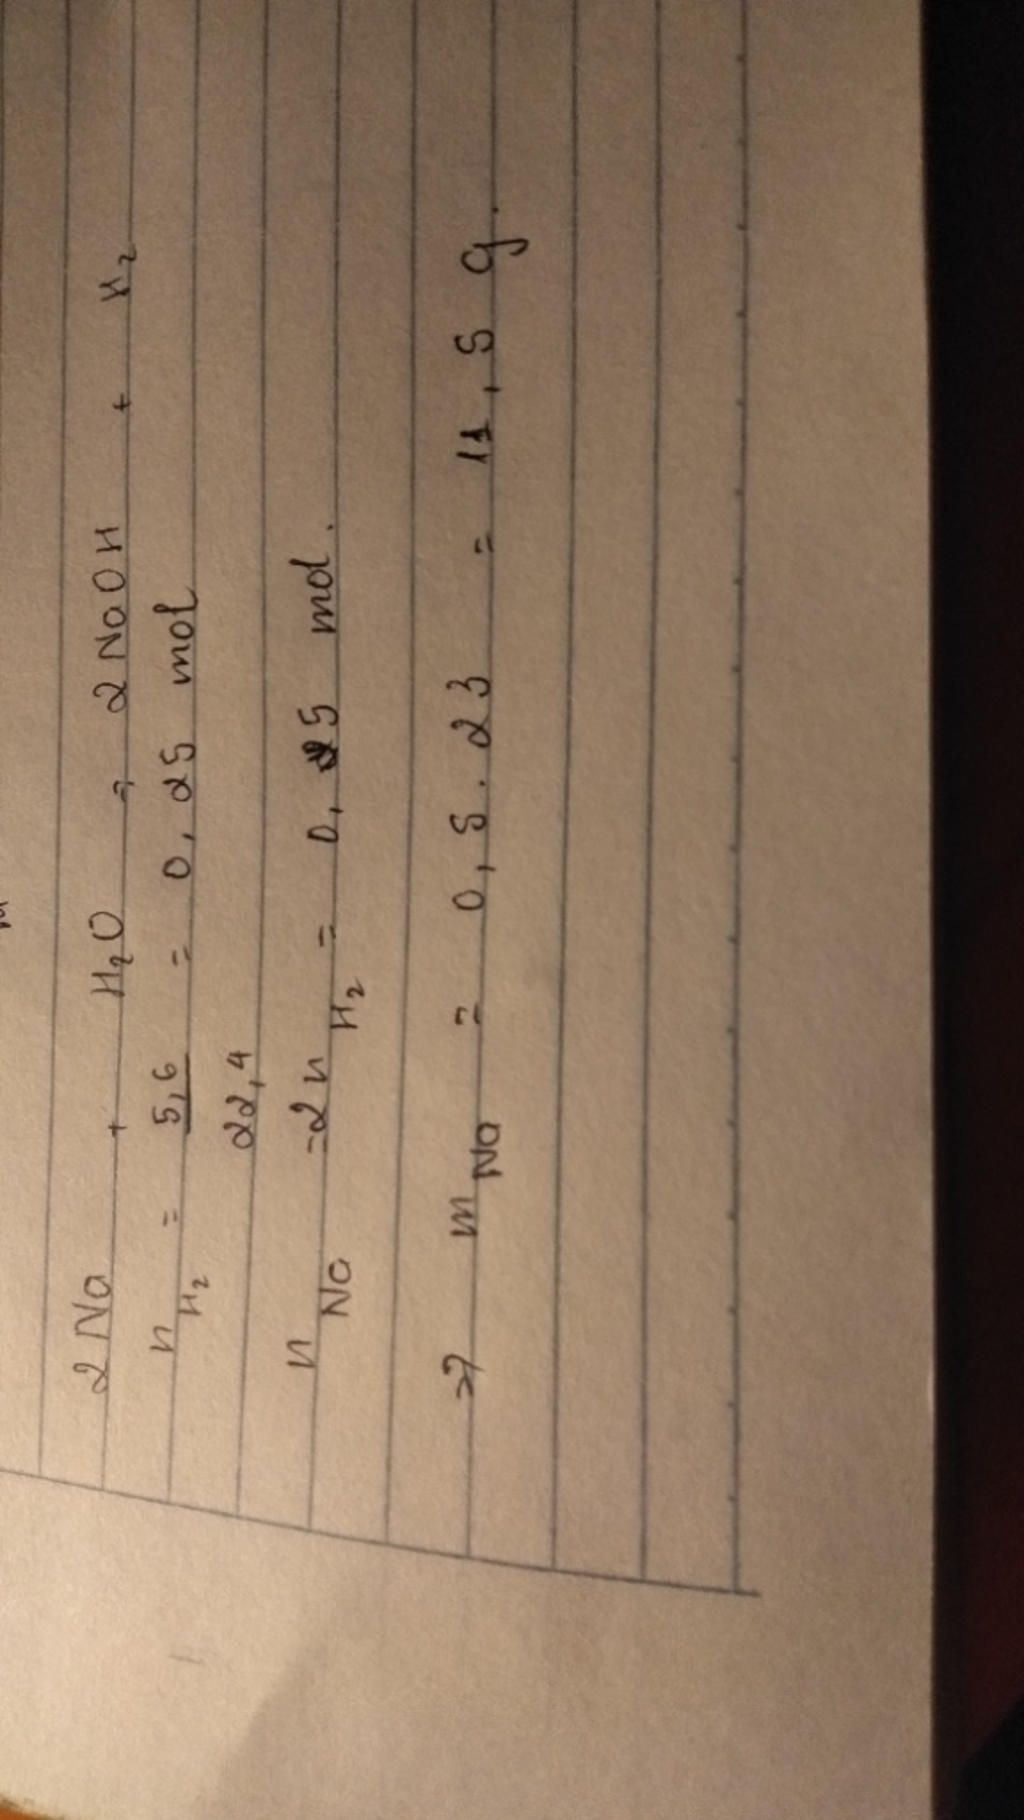 2 Na + H₂O → 2 NaOH + H₂
n H₂ = 5,6 / 22,4 = 0,25 mol
n Na = 2 n H₂ = 0,25 mol.
=> m Na = 0,5 . 23 = 11,5 g.